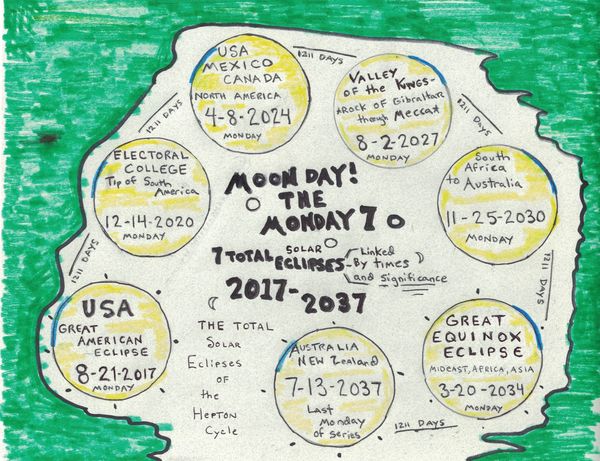 USA
MEXICO
CANADA
NORTH AMERICA
4-8-2024
MONDAY
1211 DAYS
VALLEY
OF the KINGS-
ROCK OF Gibraltar
through Mecca
8-2-2027
MONDAY
1211 DAYS
South
Africa
to Australia
11-25-2030
MONDAY
1211 DAYS
GREAT
EQUINOX
ECLIPSE
MIDEAST, AFRICA, ASIA
3-20-2034
MONDAY
1211 DAYS
AUSTRALIA
NEW Zealand
7-13-2037
Last
Monday
of series
USA
GREAT
AMERICAN
ECLIPSE
8-21-2017
MONDAY
1211 DAYS
ELECTORAL
COLLEGE
Tip of South
America
12-14-2020
MONDAY
1211 DAYS
MOON DAY!
THE
MONDAY 7
7 TOTAL SOLAR ECLIPSES
Linked
By times
and significance
2017-
2037
THE TOTAL
Solar
Eclipses
OF
the
Hepton
Cycle